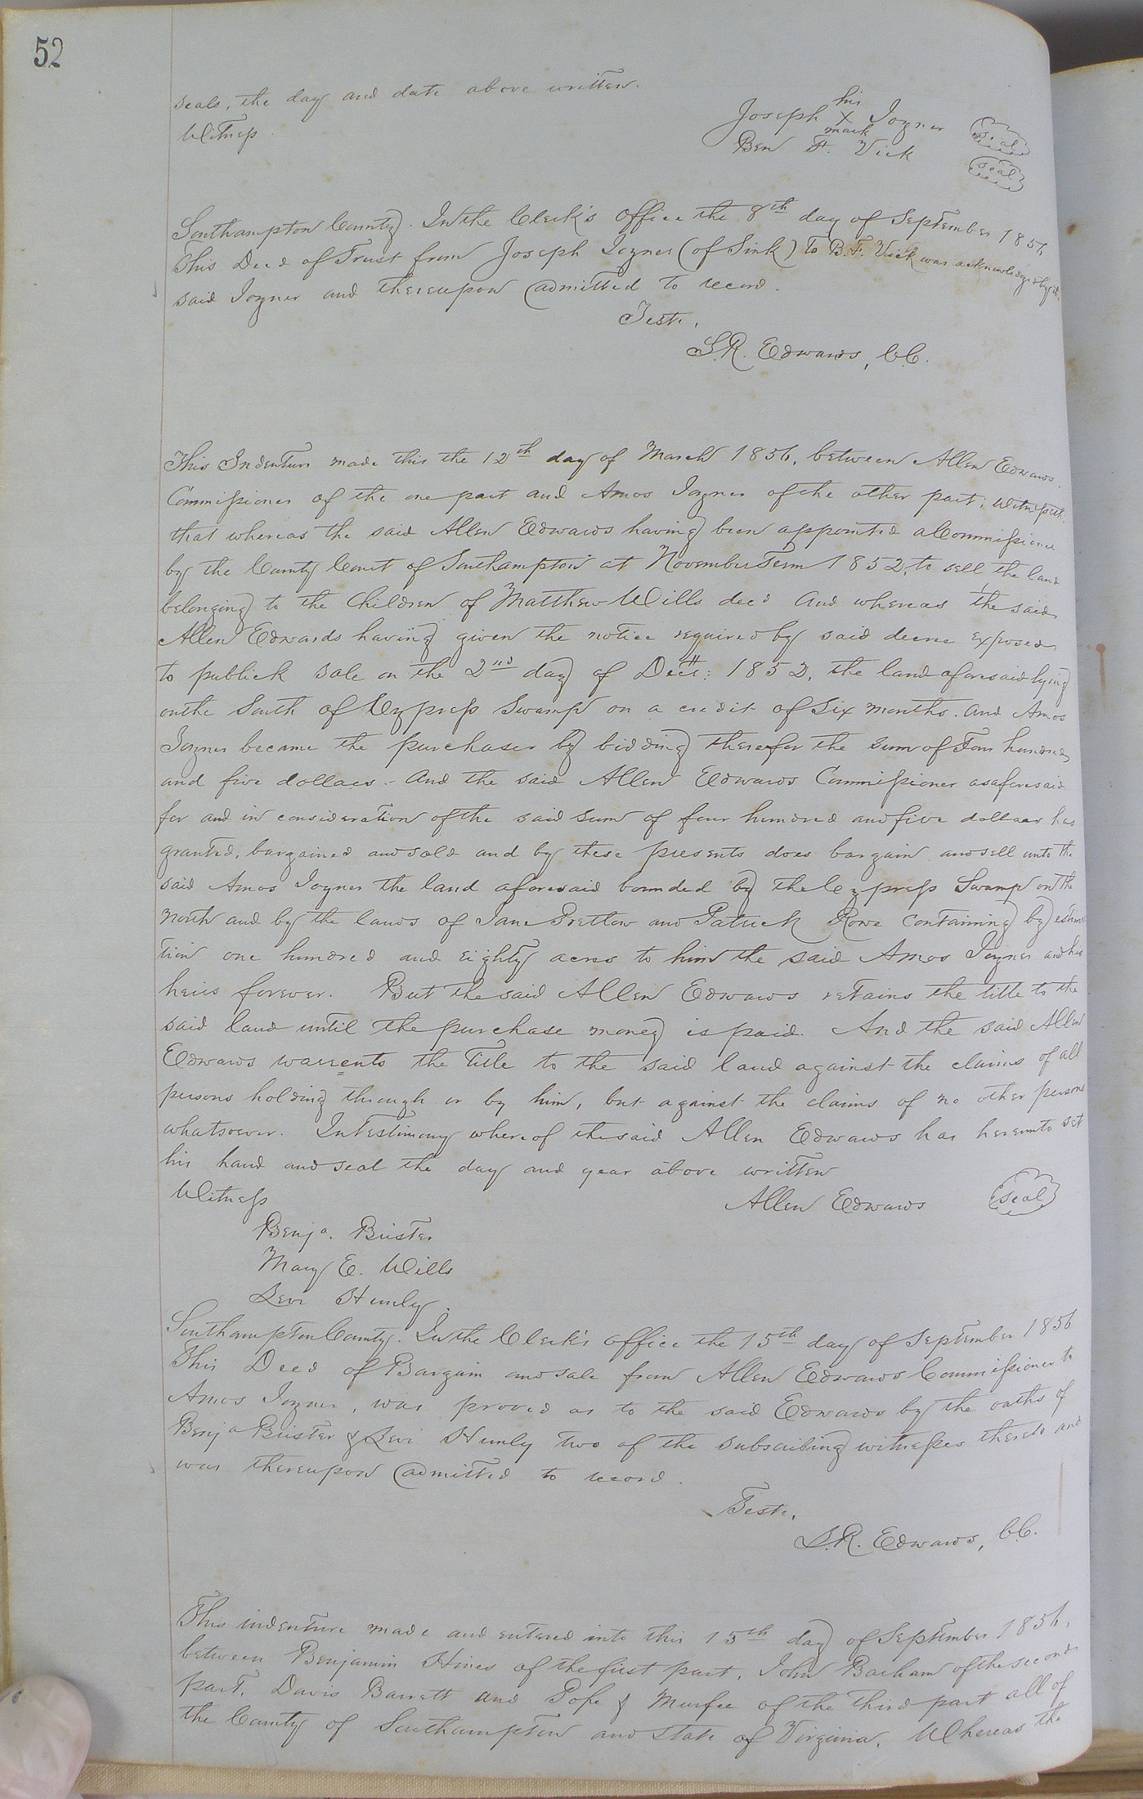 52
seals, the day and date above written.
Witness
his
Joseph X Joyner Seal
mark
Ben F. Vick Seal
Southampton County. In the Clerk's office the 8th day of September 1856,
This Deed of Trust from Joseph Joyner (of Sink) to B. F. Vick was acknowledged by the
said Joyner and thereupon admitted to record.
Teste,
L.R. Edwards, C.C.
This Indenture made this the 12th day of March 1856, between Allen Edwards,
Commissioner of the one part and Amos Joyner of the other part, Witnesseth
that whereas the said Allen Edwards having been appointed a Commissioner
by the County Court of Southampton at November Term 1852, to sell the land
belonging to the children of Matthew Wills decd And whereas the said
Allen Edwards having given the notice required by said decree exposed
to publick sale on the 2nd day of Decr: 1852, the land aforesaid lying
on the South of Cypress Swamp on a credit of Six months. And Amos
Joyner became the purchaser by bidding therefor the sum of Four hundred
and five dollars - And the said Allen Edwards Commissioner as aforesaid
for and in consideration of the said sum of four hundred and five dollars has
granted, bargained and sold and by these presents does bargain and sell unto the
said Amos Joyner the land aforesaid bounded by the Cypress Swamp on the
North and by the lands of Jane Pretlow and Patrick Rowe containing by estima-
tion one hundred and eighty acres to him the said Amos Joyner and his
heirs forever. But the said Allen Edwards retains the title to the
said land until the purchase money is paid. And the said Allen
Edwards warrents the Title to the said land against the claims of all
persons holding through or by him, but against the claims of no other persons
whatsoever. In Testimony whereof the said Allen Edwards has hereunto set
his hand and seal the day and year above written
Witness Allen Edwards Seal
Benja. Brister
Mary E. Wills
Levi Humly.
Southampton County. In the Clerk's office the 15th day of September 1856
This Deed of Bargain and sale from Allen Edwards Commissioner to
Amos Joyner, was proved as to the said Edwards by the oaths of
Benja Brister & Levi Humly two of the subscribing witnesses thereto and
was thereupon admitted to record.
Teste,
L.R. Edwards, C.C.
This indenture made and entered into this 15th day of September 1856,
between Benjamin Hines of the first part, John Barham of the second
part, Davis Barrett and Pope & Murfee of the third part all of
the County of Southampton and State of Virginia, Whereas the